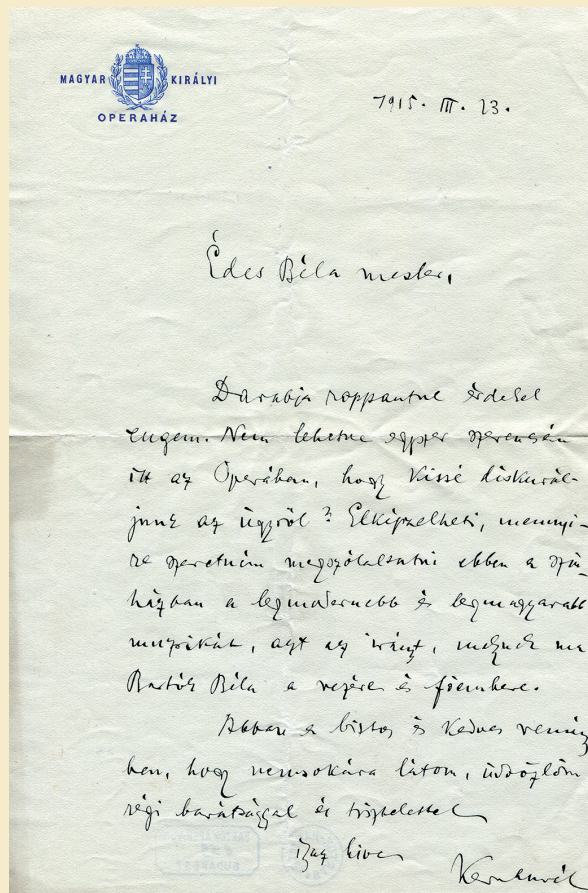 MAGYAR KIRÁLYI
OPERAHÁZ
1915. III. 23.
Édes Béla mester,
Darabja roppantul érdekel
engem. Nem lehetne egyszer szerencsém
itt az Operában, hogy kissé diskurál-
junk az ügyről? Elképzelheti, mennyi-
re szeretném megszólaltatni ebben a szín-
házban a legmodernebb és legmagyarabb
muzsikát, azt az irányt, melynek ma
Bartók Béla a vezére és főembere.
Abban a biztos és kedves remény-
ben, hogy nemsokára látom, üdvözlöm
régi barátsággal és tisztelettel
igaz híve
BUDAPEST